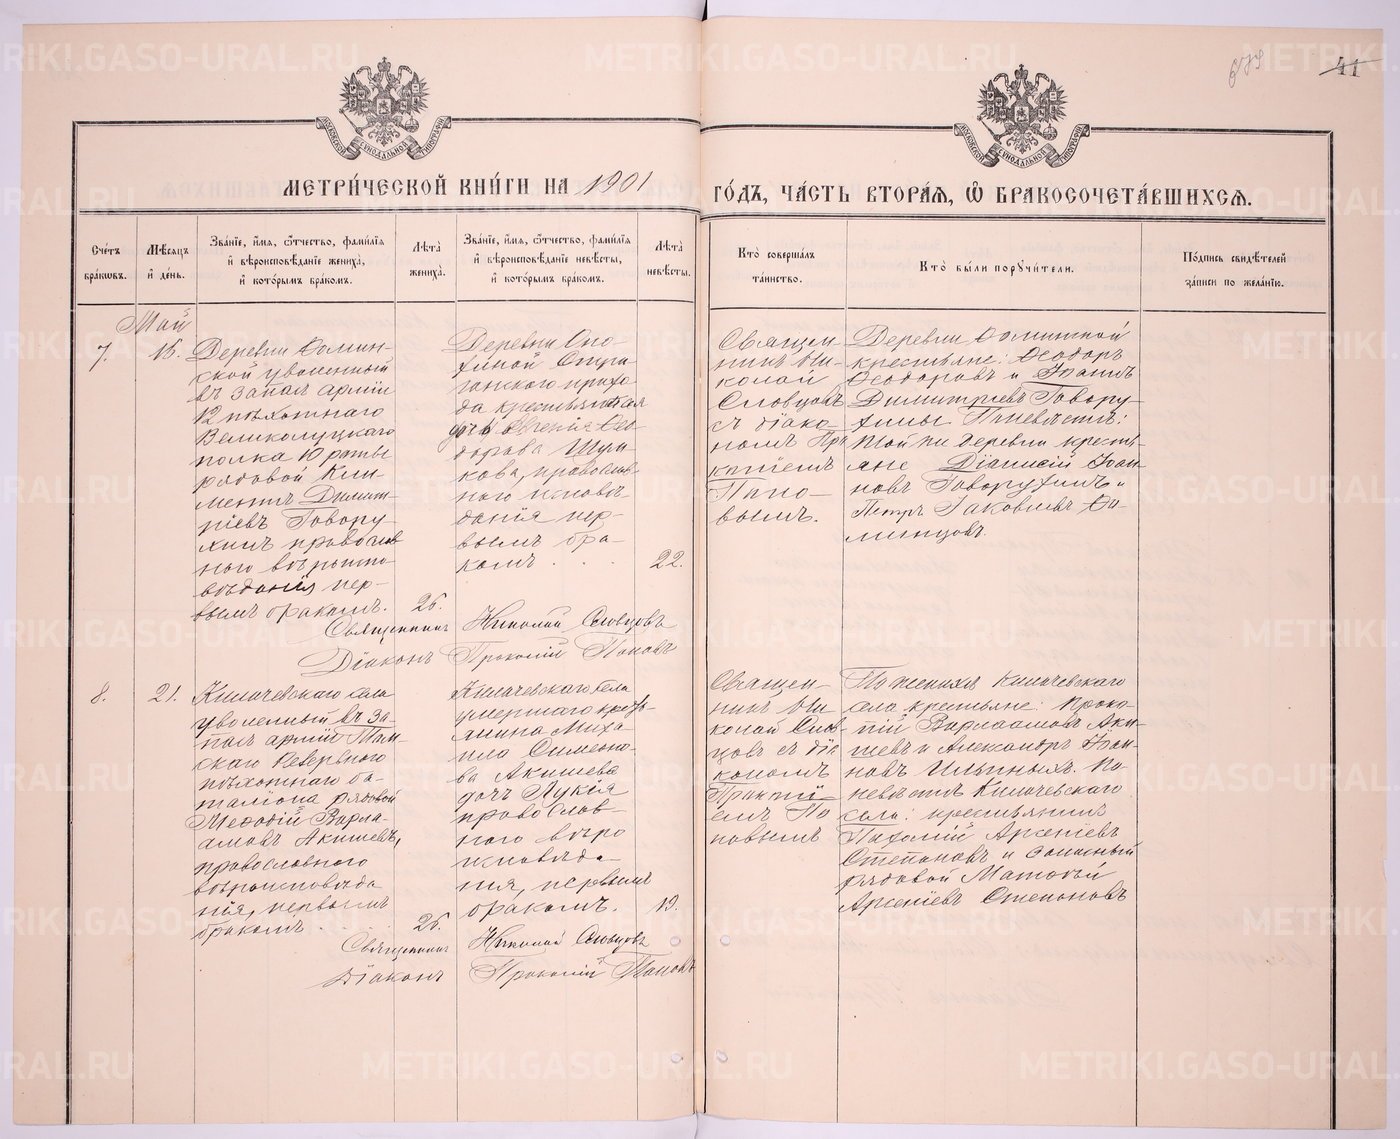 41
МЕТРИ́ЧЕСКОЙ КНИ́ГИ НА 1901 ГО́ДЪ, ЧА́СТЬ ВТОРА́Я, Ѽ БРАКОСОЧЕТА́ВШИХСЯ.
Сче́тъ бра́ковъ.
Мѣ́сяцъ и҆ де́нь.
Зва́нїе, и҆́мя, ѻ҆́тчество, фами́лїя и҆ вѣроисповѣ́данїе жениха̀, и҆ кото́рымъ бра́комъ.
Лѣ́та жениха̀.
Зва́нїе, и҆́мя, ѻ҆́тчество, фами́лїя и҆ вѣроисповѣ́данїе невѣ́сты, и҆ кото́рымъ бра́комъ.
Лѣ́та невѣ́сты.
Кто̀ соверша́лъ та́инство.
Кто̀ бы́ли порꙋчи́тели.
По́дпись свидѣ́телей за́писи по жела́нїю.
Май
7.
16.
Деревни
ской уволенный
въ запасъ армїи
12 пѣхотнаго
Великолуцкаго
полка
рядовой Кли-
ментъ Димит-
рїевъ Говору-
хинъ православ
наго вѣроиспо-
вѣданїя пер-
вымъ бракомъ.
26.
Деревни
приxо
да крестьянская
дочь Евгенїя Ѳео
дорова
кова, православ
наго исповѣ-
данїя пер-
вымъ бра-
комъ . . .
22.
Священ-
никъ Ни-
колай
Словцовъ
съ дїако-
номъ Про
копїемъ
Попо-
вымъ.
Деревни
крестьяне: Ѳеодоръ
Ѳеодоровъ и Іоаннъ
Димитрїевъ Говору-
хины По невѣстѣ:
Той же деревни кресть-
яне Дїонисїй Іоан
новъ Говорухинъ и
Петръ Іаковлевъ
Священникъ Николай Словцовъ
Дїаконъ Прокопїй Поповъ
8.
21.
Килачевскаго села
уволенный въ за-
пасъ армїи
скаго Резервнаго
пѣхотнаго ба-
талїона рядовой
Меѳодїй Варла-
амовъ Акишевъ,
православнаго
вѣроисповѣда
нїя, первымъ
бракомъ . . .
26.
Килачевскаго села
умершаго кресть
янина Миха
ила Симеоно-
ва Акишева
дочь Лукїя
православ-
наго вѣро
исповѣда-
нїя, первымъ
бракомъ.
19.
Священ-
никъ Ни-
колай Слов
цовъ съ дїа
кономъ
Прокопї
емъ По
повымъ
По женихѣ Килачевскаго
села крестьяне: Проко-
пїй Варлаамовъ Аки
шевъ и Александръ Іоан-
новъ Ильиныхъ. По
невѣстѣ Килачевскаго
села: крестьянинъ
Пахомїй Арсенїевъ
Степановъ и запасный
рядовой Матѳей
Арсенїевъ Степановъ
Священникъ Николай Словцовъ
Дїаконъ Прокопїй Поповъ
METRIKI.GASO-URAL.RU